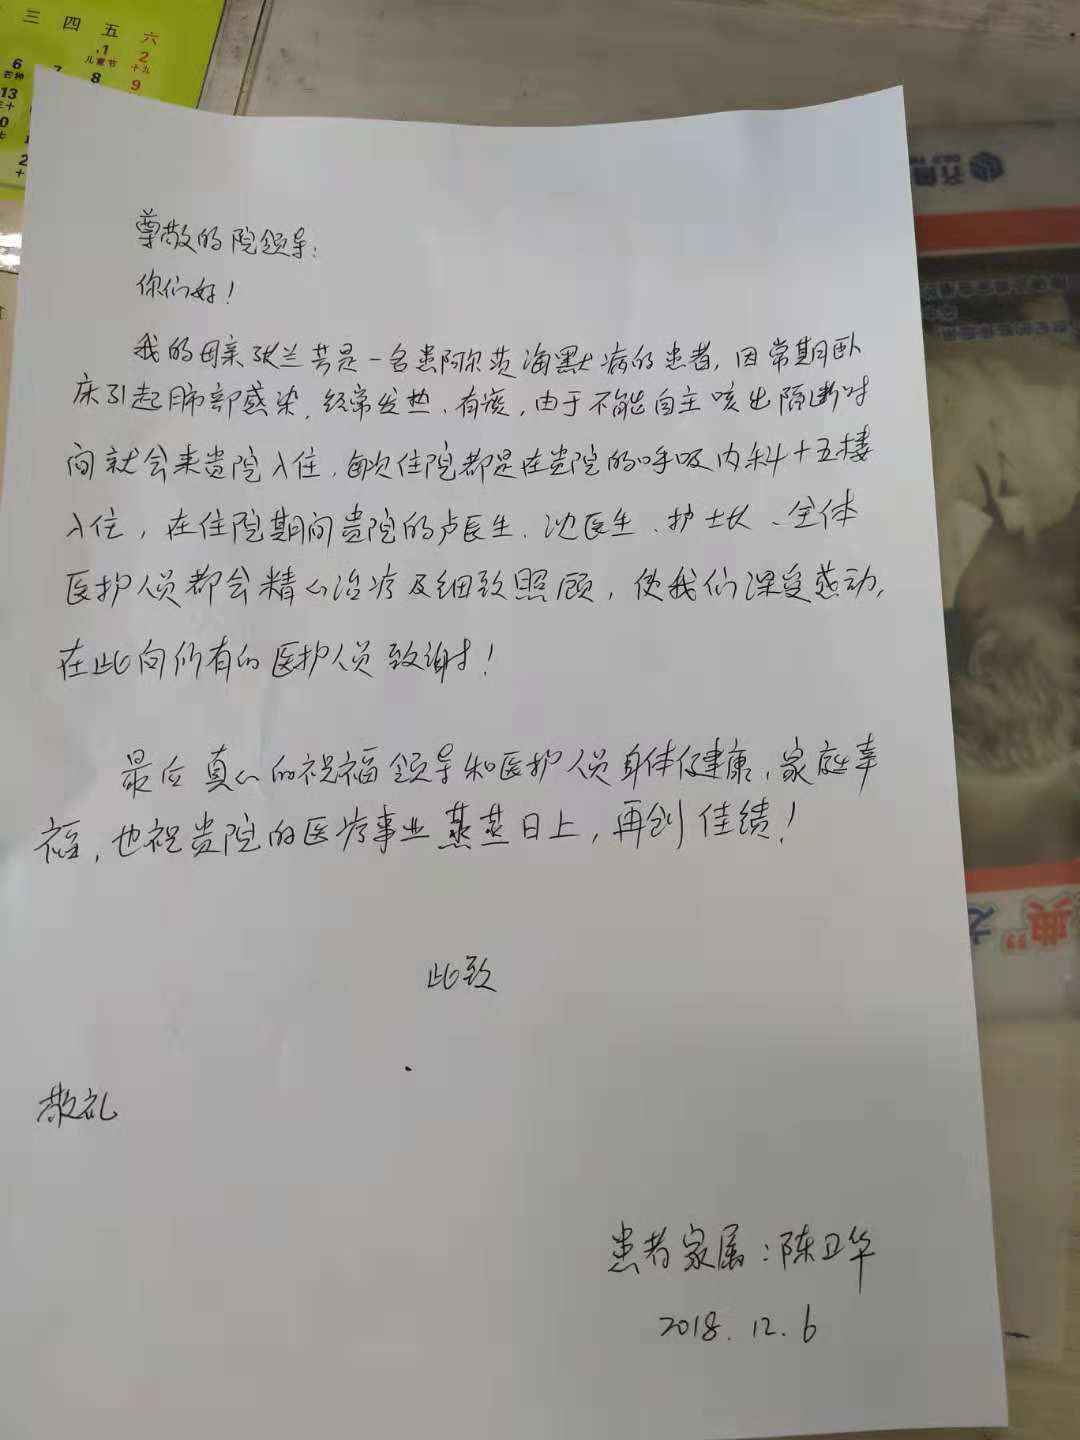 三 四 五 六
1 2
儿童节 十九
6 7 8 9
芒种
13
尊敬的院领导：
你们好！
我的母亲张兰芳是一名患阿尔茨海默病的患者，因常期卧
床引起肺部感染，经常发热、有痰，由于不能自主咳出隔断时
间就会来贵院入住，每次住院都是在贵院的呼吸内科十五楼
入住，在住院期间贵院的卢医生、沈医生、护士长、全体
医护人员都会精心治疗及细致照顾，使我们深受感动，
在此向所有的医护人员致谢！
最后真心的祝福领导和医护人员身体健康，家庭幸
福，也祝贵院的医疗事业蒸蒸日上，再创佳绩！
此致
敬礼
患者家属：陈卫华
2018.12.6
齐鲁
典”之